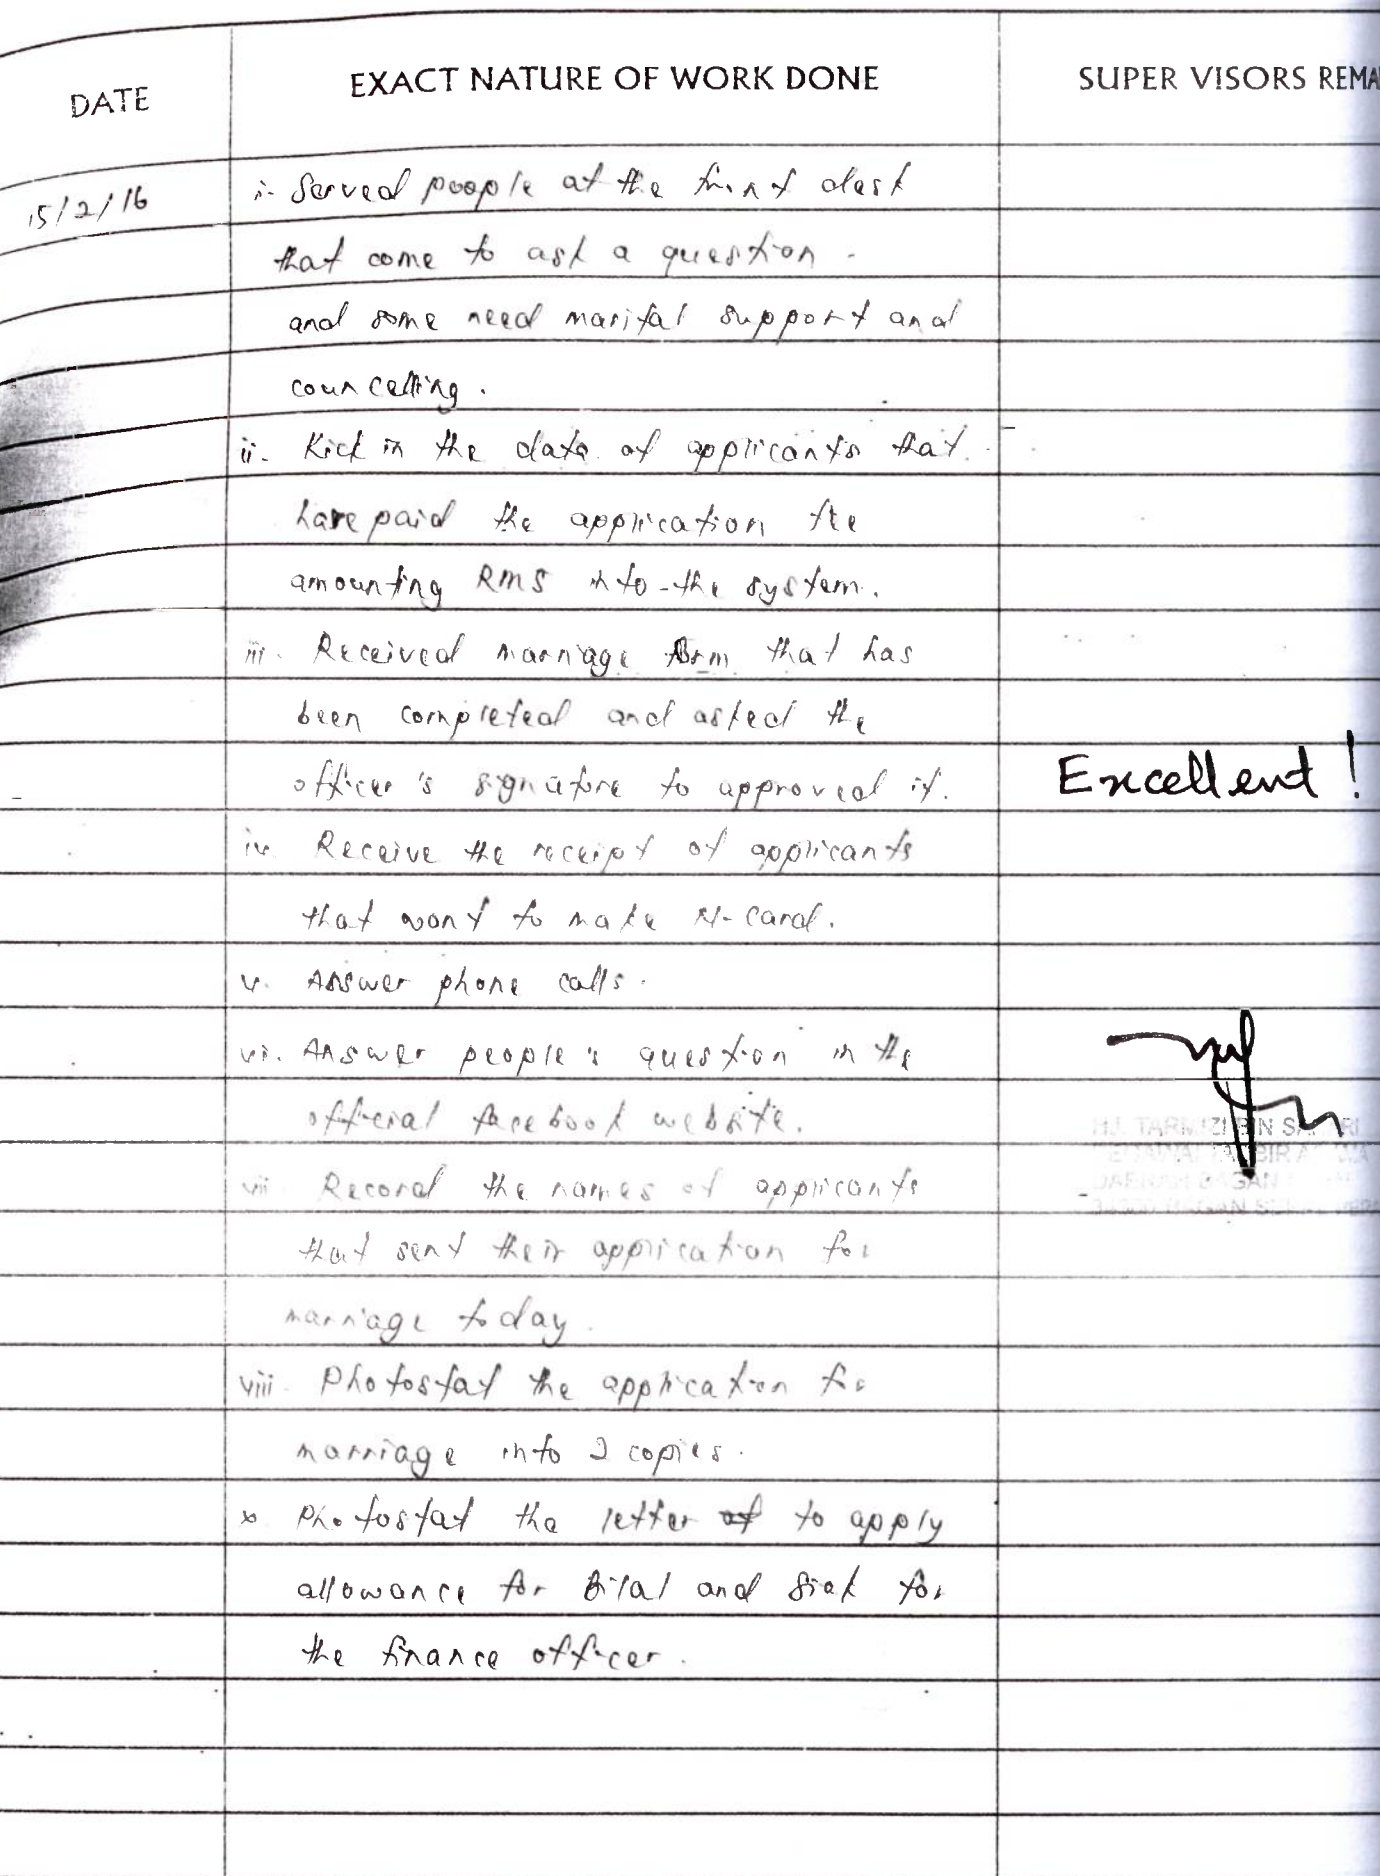 DATE
EXACT NATURE OF WORK DONE
SUPER VISORS REMA
15/2/16
i. Served people at the front desk
that come to ask a question.
and some need marital support and
councelling.
ii. Kick in the data of applicants that
have paid the application fee
amounting RM5 into the system.
iii. Received marriage form that has
been completed and asked the
officer's signature to approved it.
Excellent!
iv. Receive the receipt of applicants
that want to make N-card.
v. Answer phone calls.
vi. Answer people's question in the
official facebook website.
HJ. TARMIZI BIN
vii. Record the names of applicants
that sent their application for
marriage today.
viii. Photostat the application for
marriage into 2 copies.
x. Photostat the letter of to apply
allowance for Bilal and Siak for
the finance officer.